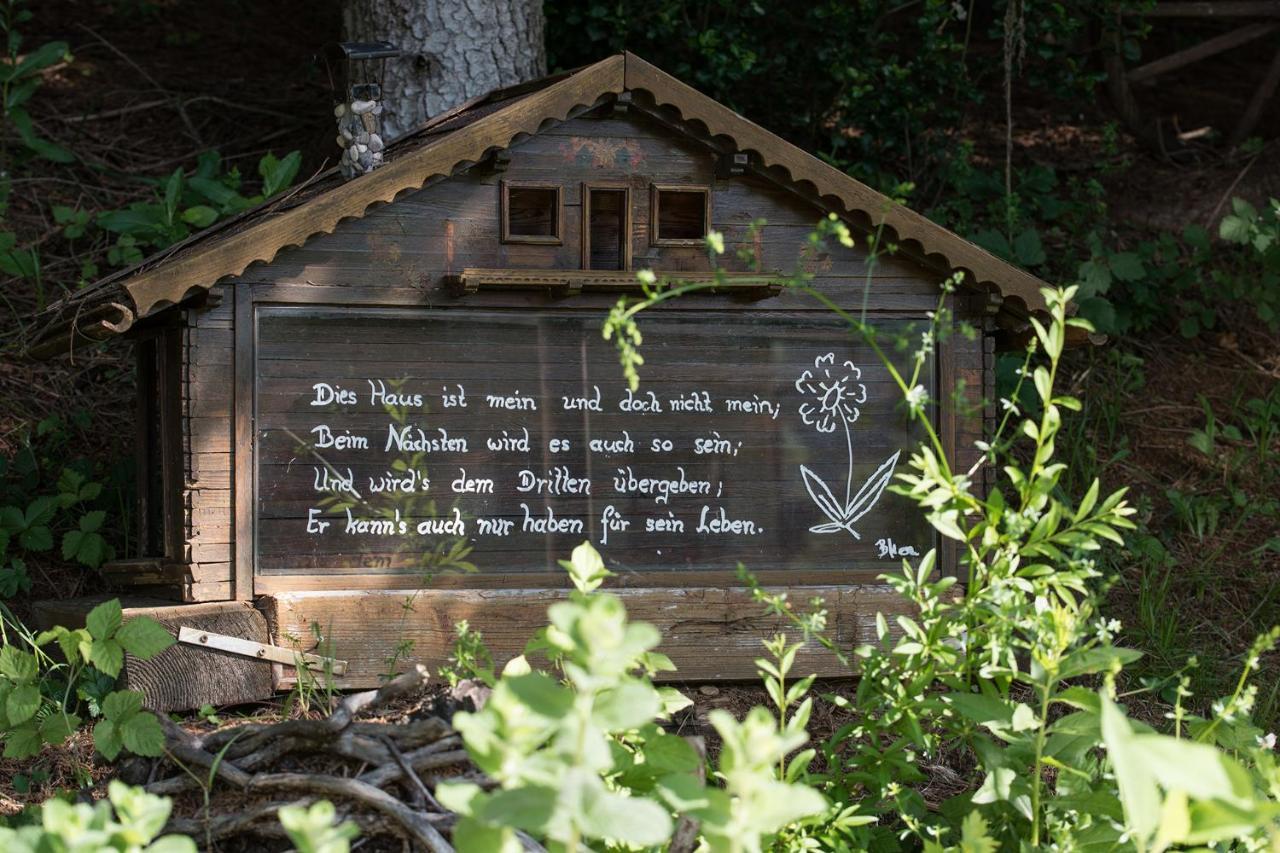 Dies Haus ist mein und doch nicht mein;
Beim Nächsten wird es auch so sein;
Und wird's dem Dritten übergeben;
Er kann's auch nur haben für sein Leben.